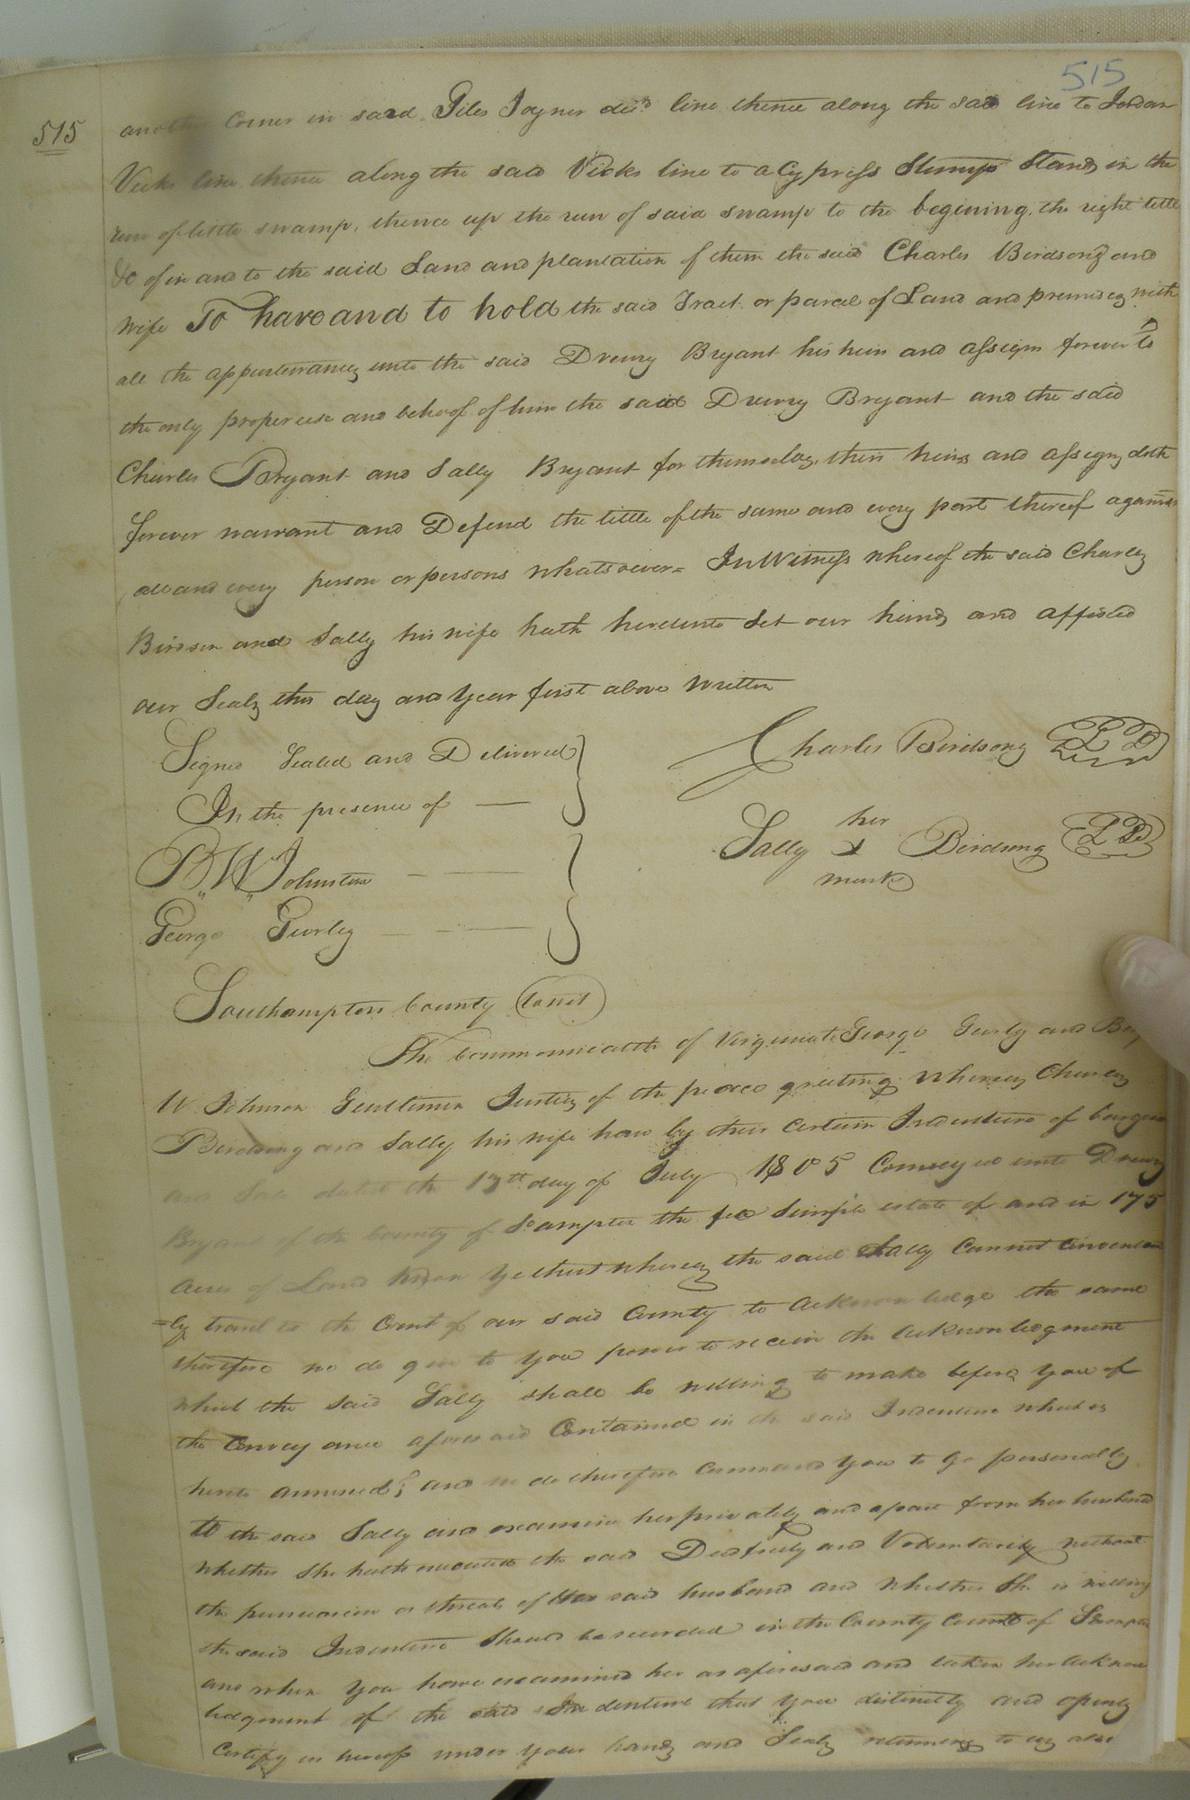 515
515
another Corner in said Giles Joyner dec.d line thence along the said line to Jordan
Vicks line thence along the said Vicks line to a Cypress Stump Stands in the
run of little swamp, thence up the run of said swamp to the begining, the right title
&c of in and to the said Land and plantation of them the said Charles Birdsong and
Wife To have and to hold the said Tract or parcel of Land and premises with
all the appurtenances unto the said Drewry Bryant his heirs and assigns forever to
the only proper use and behoof of him the said Drewry Bryant and the said
Charles Bryant and Sally Bryant for themselves, their heirs and assigns doth
forever warrant and Defend the title of the same and every part thereof against
all and every person or persons whatsoever = In Witness whereof the said Charles
Birdson and Sally his wife hath hereunto Set our hands and affixed
our Seals this day and year first above written
Signed Sealed and Delivered
In the presence of
B,, W,, Johnston
George Gurley
Charles Birdsong
her
Sally X Birdsong
mark
Southampton County
The Commonwealth of Virginia to George Gurly and
W Johnson Gentlemen Justices of the peace greeting Whereas Charles
Birdsong and Sally his wife have by their Certain Indenture of bargain
and Sale dated the 13th day of July 1805 Conveyed unto Drewry
Bryant of the County of S.ampton the fee Simple estate of and in 175
acres of Land whereas the said Sally Cannot Convenient
=ly travel to the Court of our said County to acknowledge the same
therefore we do give to you power to receive the acknowledgment
which the said Sally shall be willing to make before you of
the Convey ance aforesaid Contained in the said Indenture which is
hereto annexed; and we do therefore Command you to go personally
to the said Sally and examine her privately and apart from her husband
whether She hath executed the said Deed freely and Voluntarily without
the persuasion or threats of the said husband and whether She is willing
the said Indenture Should be recorded in the County Court of Sampton
and when you have examined her as aforesaid and taken her acknow
ledgment of the said Indenture that you distinctly and openly
Certify us hereof under your hands and Seals returning to us also